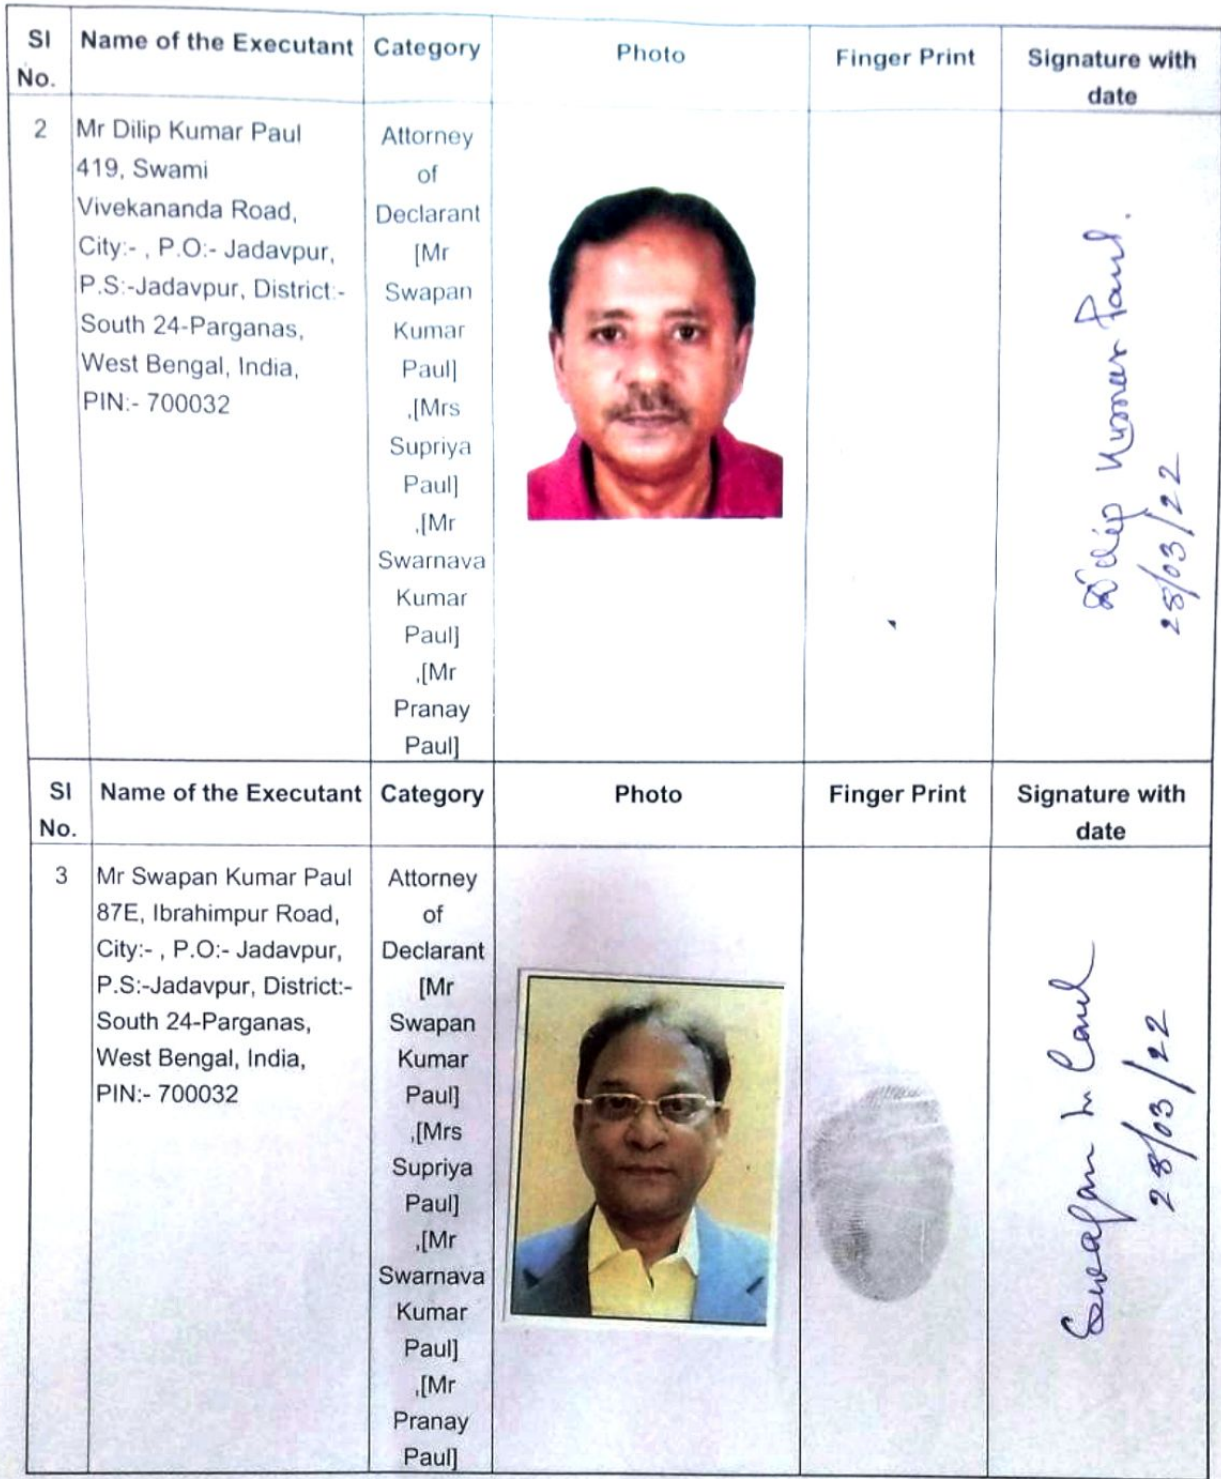 Sl No.
Name of the Executant
Category
Photo
Finger Print
Signature with date
2
Mr Dilip Kumar Paul
419, Swami
Vivekananda Road,
City:- , P.O:- Jadavpur,
P.S:-Jadavpur, District:-
South 24-Parganas,
West Bengal, India,
PIN:- 700032
Attorney
of
Declarant
[Mr
Swapan
Kumar
Paul]
,[Mrs
Supriya
Paul]
,[Mr
Swarnava
Kumar
Paul]
,[Mr
Pranay
Paul]
Dilip Kumar Paul.
28/03/22
Sl No.
Name of the Executant
Category
Photo
Finger Print
Signature with date
3
Mr Swapan Kumar Paul
87E, Ibrahimpur Road,
City:- , P.O:- Jadavpur,
P.S:-Jadavpur, District:-
South 24-Parganas,
West Bengal, India,
PIN:- 700032
Attorney
of
Declarant
[Mr
Swapan
Kumar
Paul]
,[Mrs
Supriya
Paul]
,[Mr
Swarnava
Kumar
Paul]
,[Mr
Pranay
Paul]
Swapan Kr Paul
28/03/22